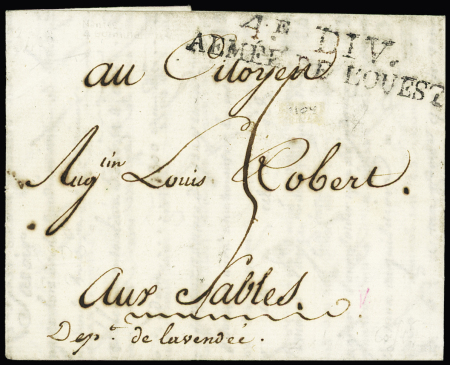 4E DIV.
ARMÉE DE L'OUEST
au Citoyen
Augtin Louis Robert.
Aux Sables.
Dept. de lavendée.